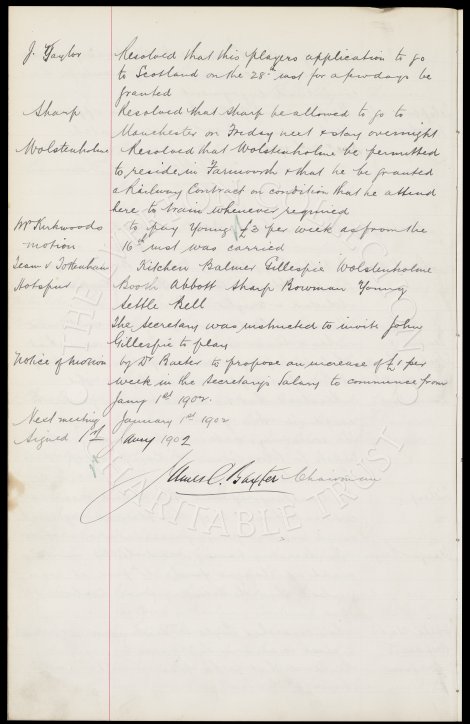 J. Taylor Resolved that this players application to go
to Scotland on the 28th inst for a few days be
granted
Sharp Resolved that Sharp be allowed to go to
Manchester on Friday next & stay overnight
Wolstenholme Resolved that Wolstenholme be permitted
to reside in Farnworth & that he be granted
a Railway Contract on condition that he attend
here to train whenever required
Mr Kirkwoods to pay Young £3 per week as from the
motion 16th inst was carried
Team v Tottenham Kitchen Balmer Gillespie Wolstenholme
Hotspur Booth Abbott Sharp Bowman Young
Settle Bell
The Secretary was instructed to invite John
Gillespie to play
Notice of motion by Dr Baxter to propose an increase of £1 per
week in the Secretarys Salary to commence from
Jany 1st 1902.
Next meeting January 1st 1902
Signed 1st Jany 1902
James C. Baxter Chairman
CHARITABLE TRUST